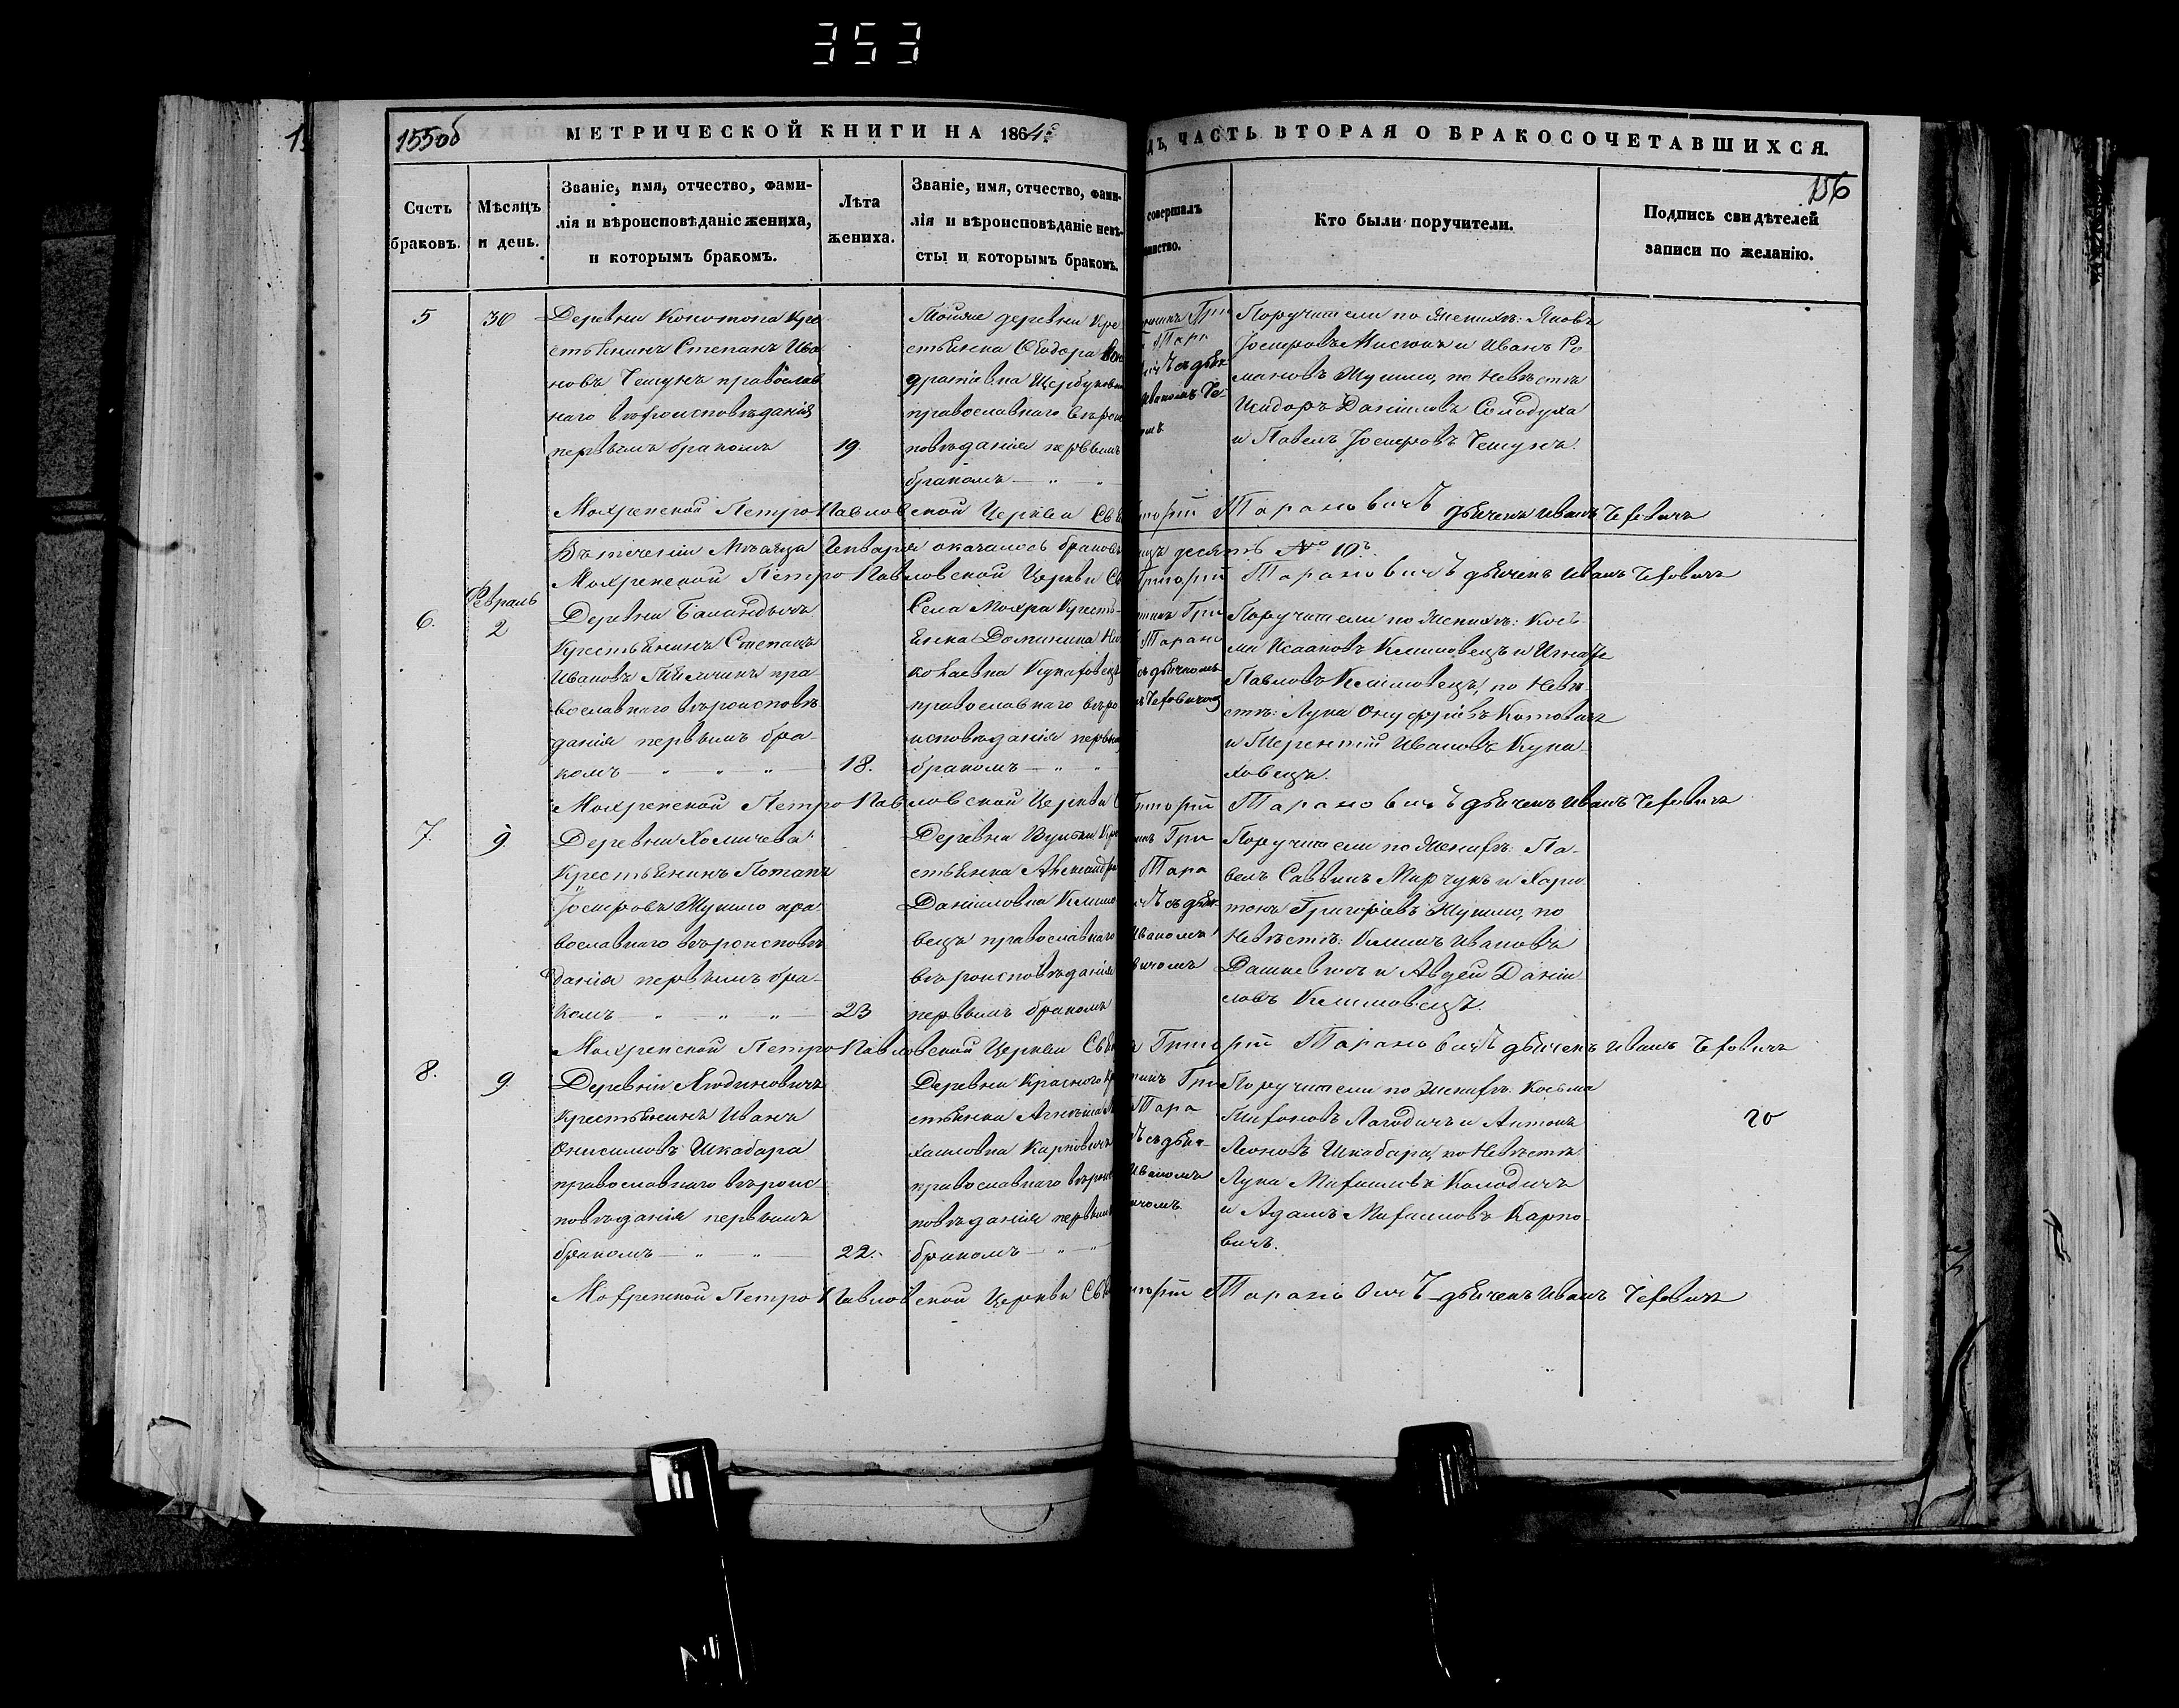 353
155об
МЕТРИЧЕСКОЙ КНИГИ НА 1864
ДЪ, ЧАСТЬ ВТОРАЯ О БРАКОСОЧЕТАВШИХСЯ.
156
Счетъ
браковъ.
Мѣсяцъ
и день.
Званіе, имя, отчество, фами-
лія и вѣроисповѣданіе жениха,
и которымъ бракомъ.
Лѣта
жениха.
Званіе, имя, отчество, фами-
лія и вѣроисповѣданіе невѣ-
сты и которымъ бракомъ.
совершалъ
инство.
Кто были поручители.
Подпись свидѣтелей
записи по желанію.
5
30
Деревни Конотопа Кре
стьянинъ Степанъ Ива
новъ Чешунъ православ
наго вѣроисповѣданія
первымъ бракомъ
19.
Тойже деревни Кре
стьянка Ѳеодора Кон
дратіевна
православнаго вѣроис
повѣданія первымъ
бракомъ
Гри
Тара
съ дьяч
Иваномъ Че
Поручители по Женихѣ: Яковъ
Іосифовъ Мисюкъ и Иванъ Ро
мановъ Жушмо, по Невѣстѣ
Исидоръ Даніиловъ Солодуха
и Павелъ Іосифовъ Чешунъ.
Мохренской Петро Павловской Церкви Св
игорій Тарановичъ дьячекъ Иванъ Чеховичъ
Въ теченіи Мѣсяца Генваря оказалось браковъ
десять № 10.
Мохренской Петро Павловской Церкви Св
Григорій Тарановичъ дьячекъ Иванъ Чеховичъ
6.
Февраль
2
Деревни
Крестьянинъ Степанъ
Ивановъ пра
вославнаго вѣроисповѣ
данія первымъ бра-
комъ
18.
Села Мохра Кресть-
янка Доминика Ни
колаевна Кунаховецъ
православнаго вѣро
исповѣданія первы
бракомъ
Гри
Тарано
съ дьячкомъ
Чеховичемъ
Поручители по Женихѣ: Кось
ма Исааковъ Климовецъ и
Павловъ Климовецъ, по Невѣ
стѣ: Лука Онуфріевъ Котовичъ
и Терентій Ивановъ Куна
ховецъ.
Мохренской Петро Павловской Церкви С
Григорій Тарановичъ дьячекъ Иванъ Чеховичъ
7.
9
Деревни Хомичева
Крестьянинъ Потапъ
Іосифовъ Жушмо пра
вославнаго вѣроисповѣ
данія первымъ бра-
комъ
23
Деревни Вульки Кре
стьянка Александра
Даніиловна Климо
вецъ православнаго
вѣроисповѣданія
первымъ бракомъ
Гри
Тара
съ дьяч
Иваномъ
Поручители по Женихѣ: Па-
велъ Саввинъ Марчукъ и Хари
тонъ Григоріевъ Жушмо, по
Невѣстѣ: Климъ Ивановъ
Дашкевичъ и Авдей Даніи
ловъ Климовецъ.
Мохренской Петро Павловской Церкви Свя
Григорій Тарановичъ дьячекъ Иванъ Чеховичъ
8.
9
Деревни Людиновичъ
Крестьянинъ Иванъ
Онисимовъ Шкабара
православнаго вѣроис
повѣданія первымъ
бракомъ
22.
Деревни Красного Кре
стьянка
хаиловна Карповичъ
православнаго вѣроис
повѣданія первымъ
бракомъ
Гри
Тара
съ дьяч-
Иваномъ
Поручители по Женихѣ: Косьма
Лагодичъ и Антонъ
Леоновъ Шкабара, по Невѣстѣ:
Лука Михаиловъ Колодичъ
и Адамъ Михаиловъ Карпо
вичъ.
20
Мохренской Петро Павловской Церкви Свя
игорій Тарановичъ дьячекъ Иванъ Чеховичъ